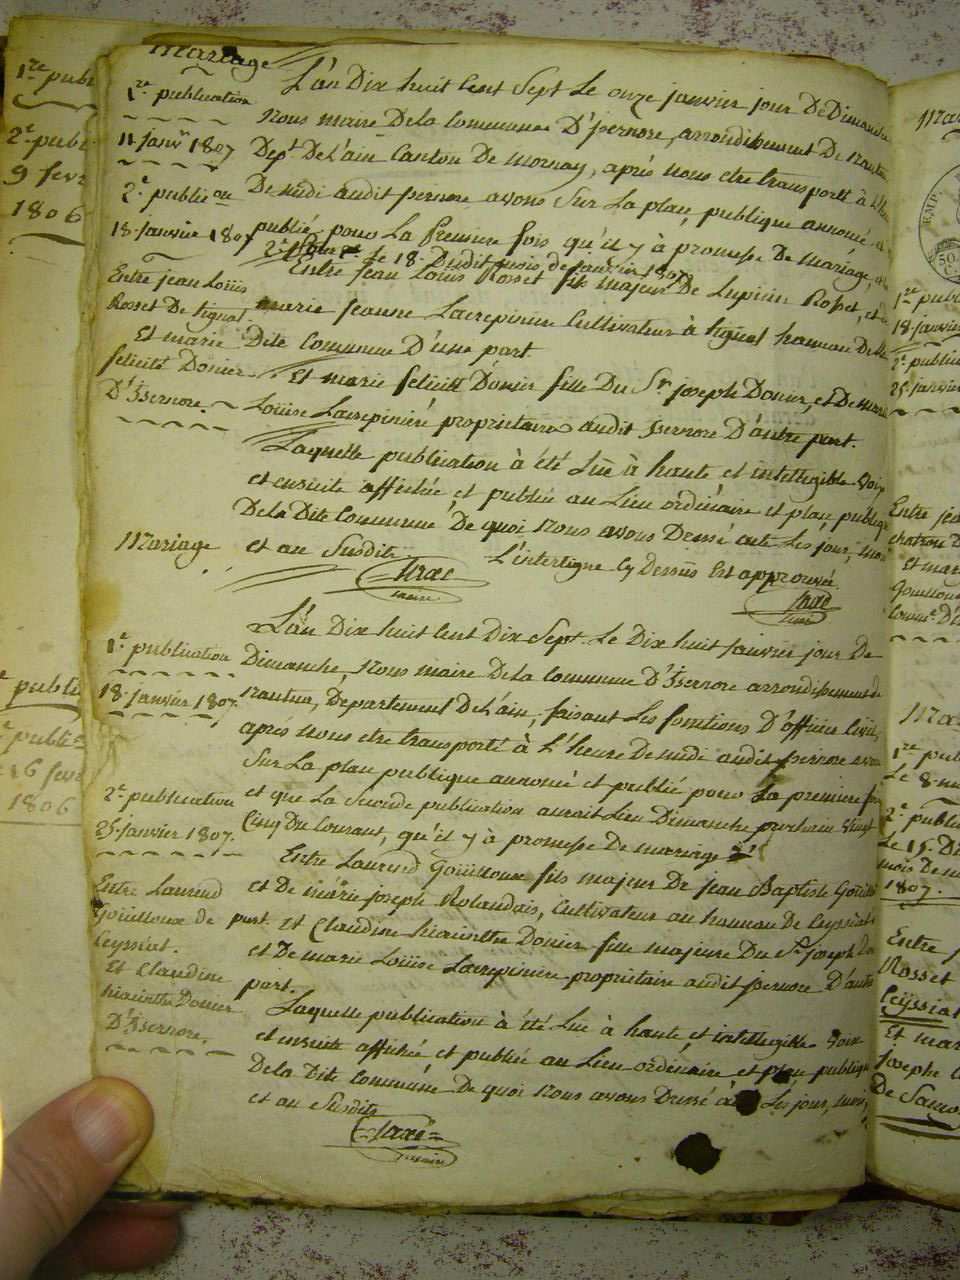 Mariage
1re publication
11 Janvr 1807
2e publicaon
18 Janvier 1807
Entre Jean Loüis
Rosset De tignat
Et marie
felicité Donier
D'Isernore.
L'an Dix huit Cent Sept Le onze janvier jour De Dimanche
Nous maire De la Commune D'Isernore, arrondissement De Nantua
Dept De L'ain Canton De Mornay, après nous etre transporté à L'heure
De midi audit isernore avons Sur La place publique annoncé et
publié pour La Premiere fois qu'il y à promesse De mariage,
Le 18 Dudit mois de janvier 1807
Entre Jean Louis Rosset fils majeur De Lupicin Rosset, et de
marie Jeanne Lacrepiniere Cultivateur à tignat hameau De la
Dite Commune D'une part.
Et marie felicité Donier fille Du Sr joseph Donier, et De marie
Loüise Lacrepiniere proprietaires audit Isernore D'autre part.
Laquelle publication à été Lüe à haute et intelligible Voix
et ensuite affichée et publiée au Lieu ordinaire et place publique
De la Dite Commune De quoi Nous avons Dressé acte Les jour, mois
et an Susdits. L'interligne Cy Dessus Est approuvé
maire
maire
Mariage
1e publication
18 Janvier 1807
2e publication
25 janvier 1807.
Entre Laurend
Goüilloux de
Ceyssiat.
Et Claudine
hiacinthe Donier
D'Isernore.
L'an Dix huit Cent Dix Sept Le Dix huit Janvier jour De
Dimanche, Nous maire De la Commune D'Isernore arrondissement de
Nantua, Departement De L'ain, faisant Les fonctions D'officier Civil,
après nous etre transporté à L'heure De midi audit isernore avons
Sur La place publique annoncé et publié pour La premiere fois
et que La Seconde publication auroit Lieu Dimanche prochain Vingt
Cinq Du Courant, qu'il y à promesse De mariage
Entre Laurend Goüilloux fils majeur De Jean Baptiste Goüilloux
et De marie joseph Rolandais, Cultivateur au hameau De Ceyssiat
part. Et Claudine hiacinthe Donier fille majeure Du Sr joseph Donier
et De marie Loüise Lacrepiniere proprietaire audit Isernore D'autre
part.
Laquelle publication à été Lüe à haute et intelligible Voix
et ensuite affichée et publiée au Lieu ordinaire et place publique
De la Dite Commune De quoi Nous avons Dressé Les jour, mois,
et an Susdits
maire
1re publi
2e publi
9 fevr
1806
e publi
2e publi
16 fevr
1806
Mar
1re publi
18 janvier
2e publi
25 janvier
Entre jea
Et mar
Mar
1re publ
Le 8
2e publi
Le 15 D
mois De
1807.
Entre
Rosset
Ceyssiat
Et mar
Josephe
De Samo